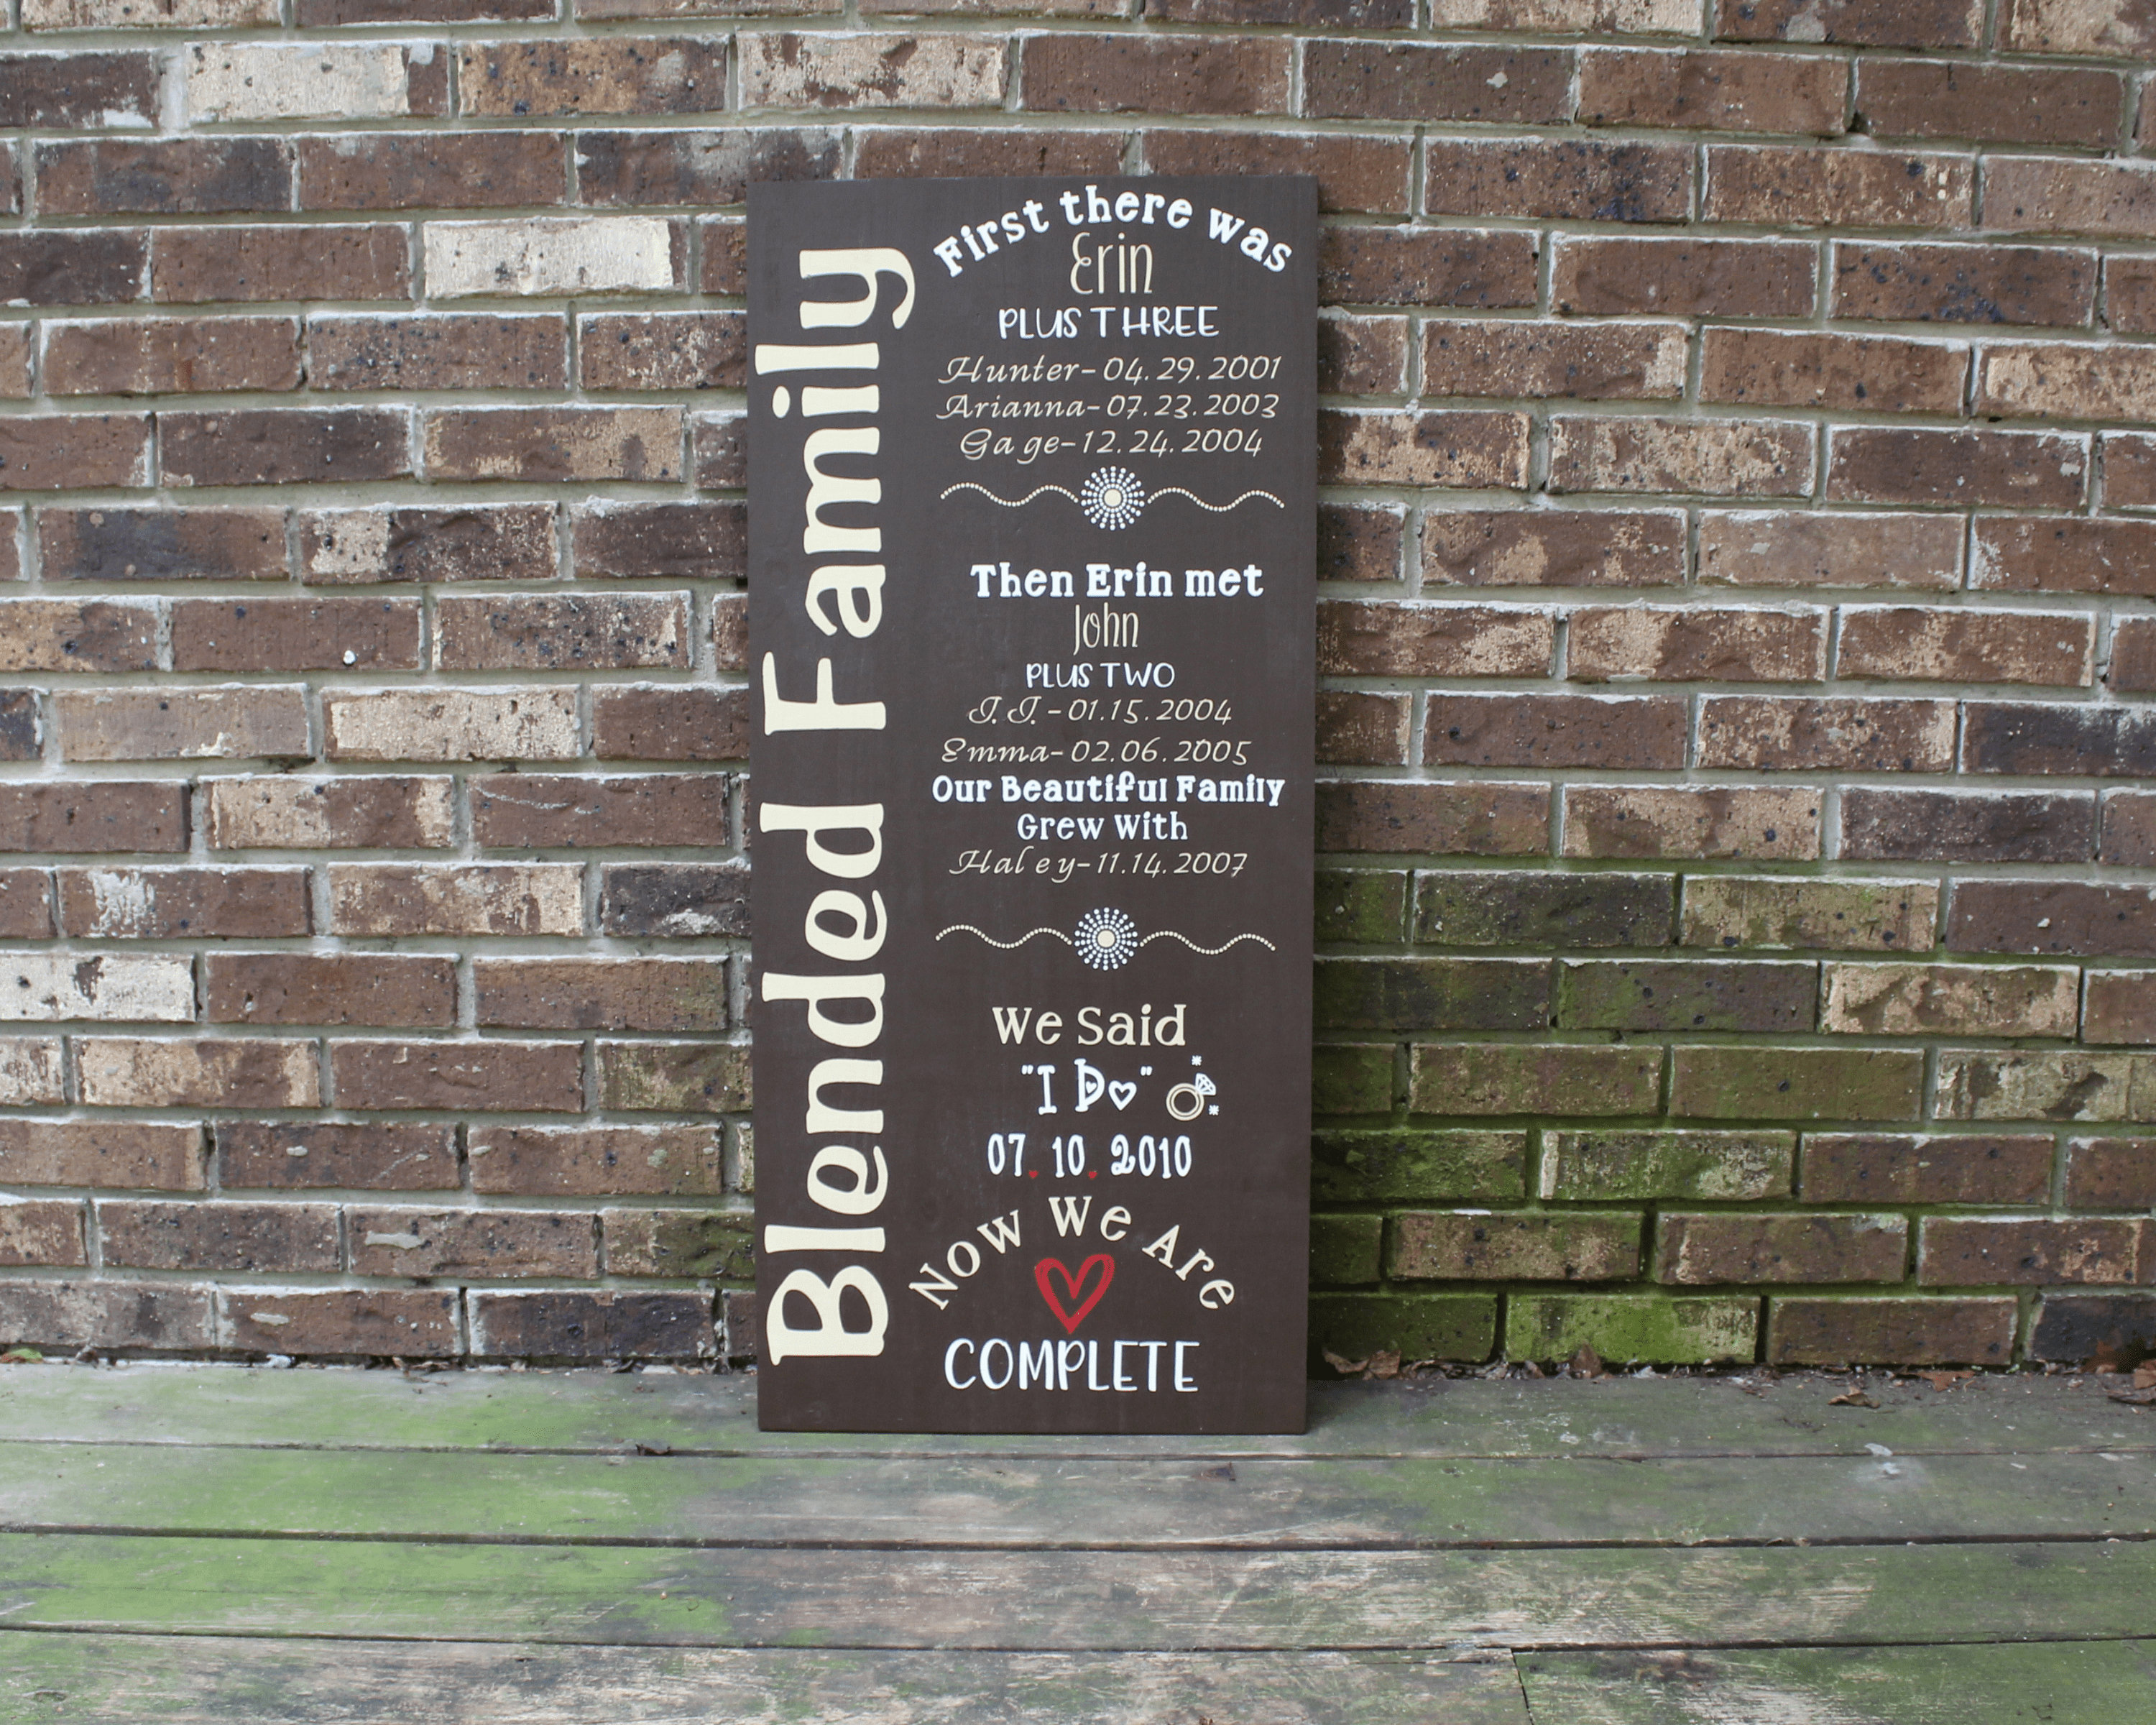 Blended Family
First there was
Erin
PLUS THREE
Hunter-04.29.2001
Arianna-07.23.2003
Gage-12.24.2004
Then Erin met
John
PLUS TWO
J.J.-01.15.2004
Emma-02.06.2005
Our Beautiful Family
Grew With
Haley-11.14.2007
We Said
"I Do"
07.10.2010
Now We Are
COMPLETE